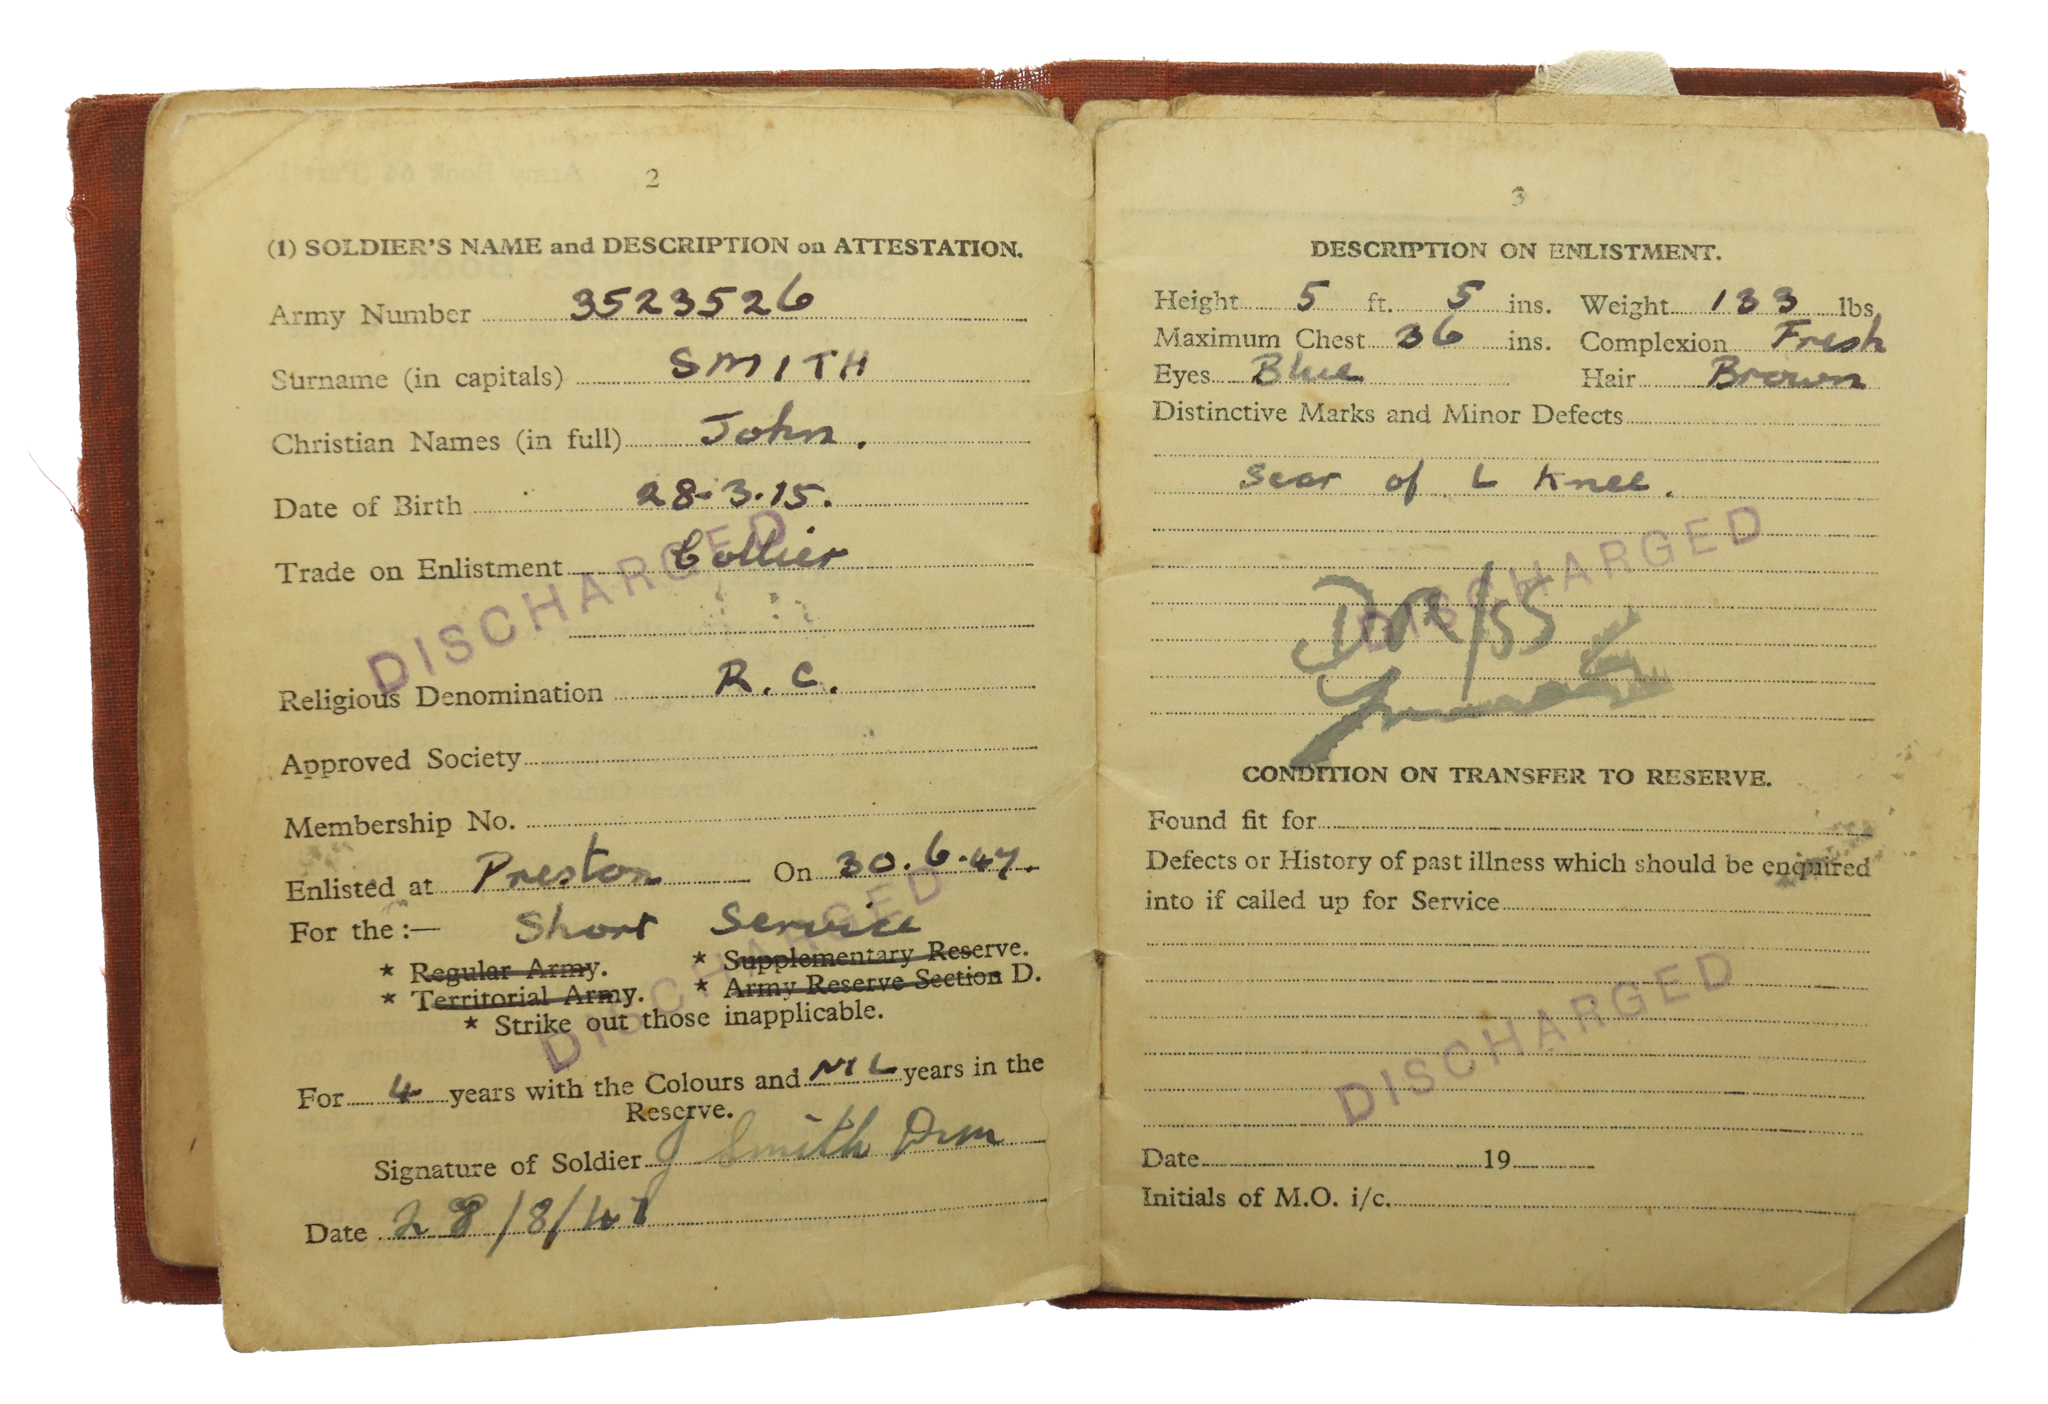 2
(1) SOLDIER'S NAME and DESCRIPTION on ATTESTATION.
Army Number 3523526
Surname (in capitals) SMITH
Christian Names (in full) John.
Date of Birth 28.3.15.
Trade on Enlistment Collier
DISCHARGED
Religious Denomination R.C.
Approved Society
Membership No.
Enlisted at Preston On 30.6.47.
For the :— Short Service
* Regular Army. * Supplementary Reserve.
* Territorial Army. * Army Reserve Section D.
* Strike out those inapplicable.
DISCHARGED
For 4 years with the Colours and NIL years in the
Reserve.
Signature of Soldier J Smith Drm
Date 28/8/47
3
DESCRIPTION ON ENLISTMENT.
Height 5 ft. 5 ins. Weight 133 lbs
Maximum Chest 36 ins. Complexion Fresh
Eyes Blue Hair Brown
Distinctive Marks and Minor Defects
Scar of L Knee.
DISCHARGED
CONDITION ON TRANSFER TO RESERVE.
Found fit for
Defects or History of past illness which should be enquired
into if called up for Service
DISCHARGED
Date 19
Initials of M.O. i/c.